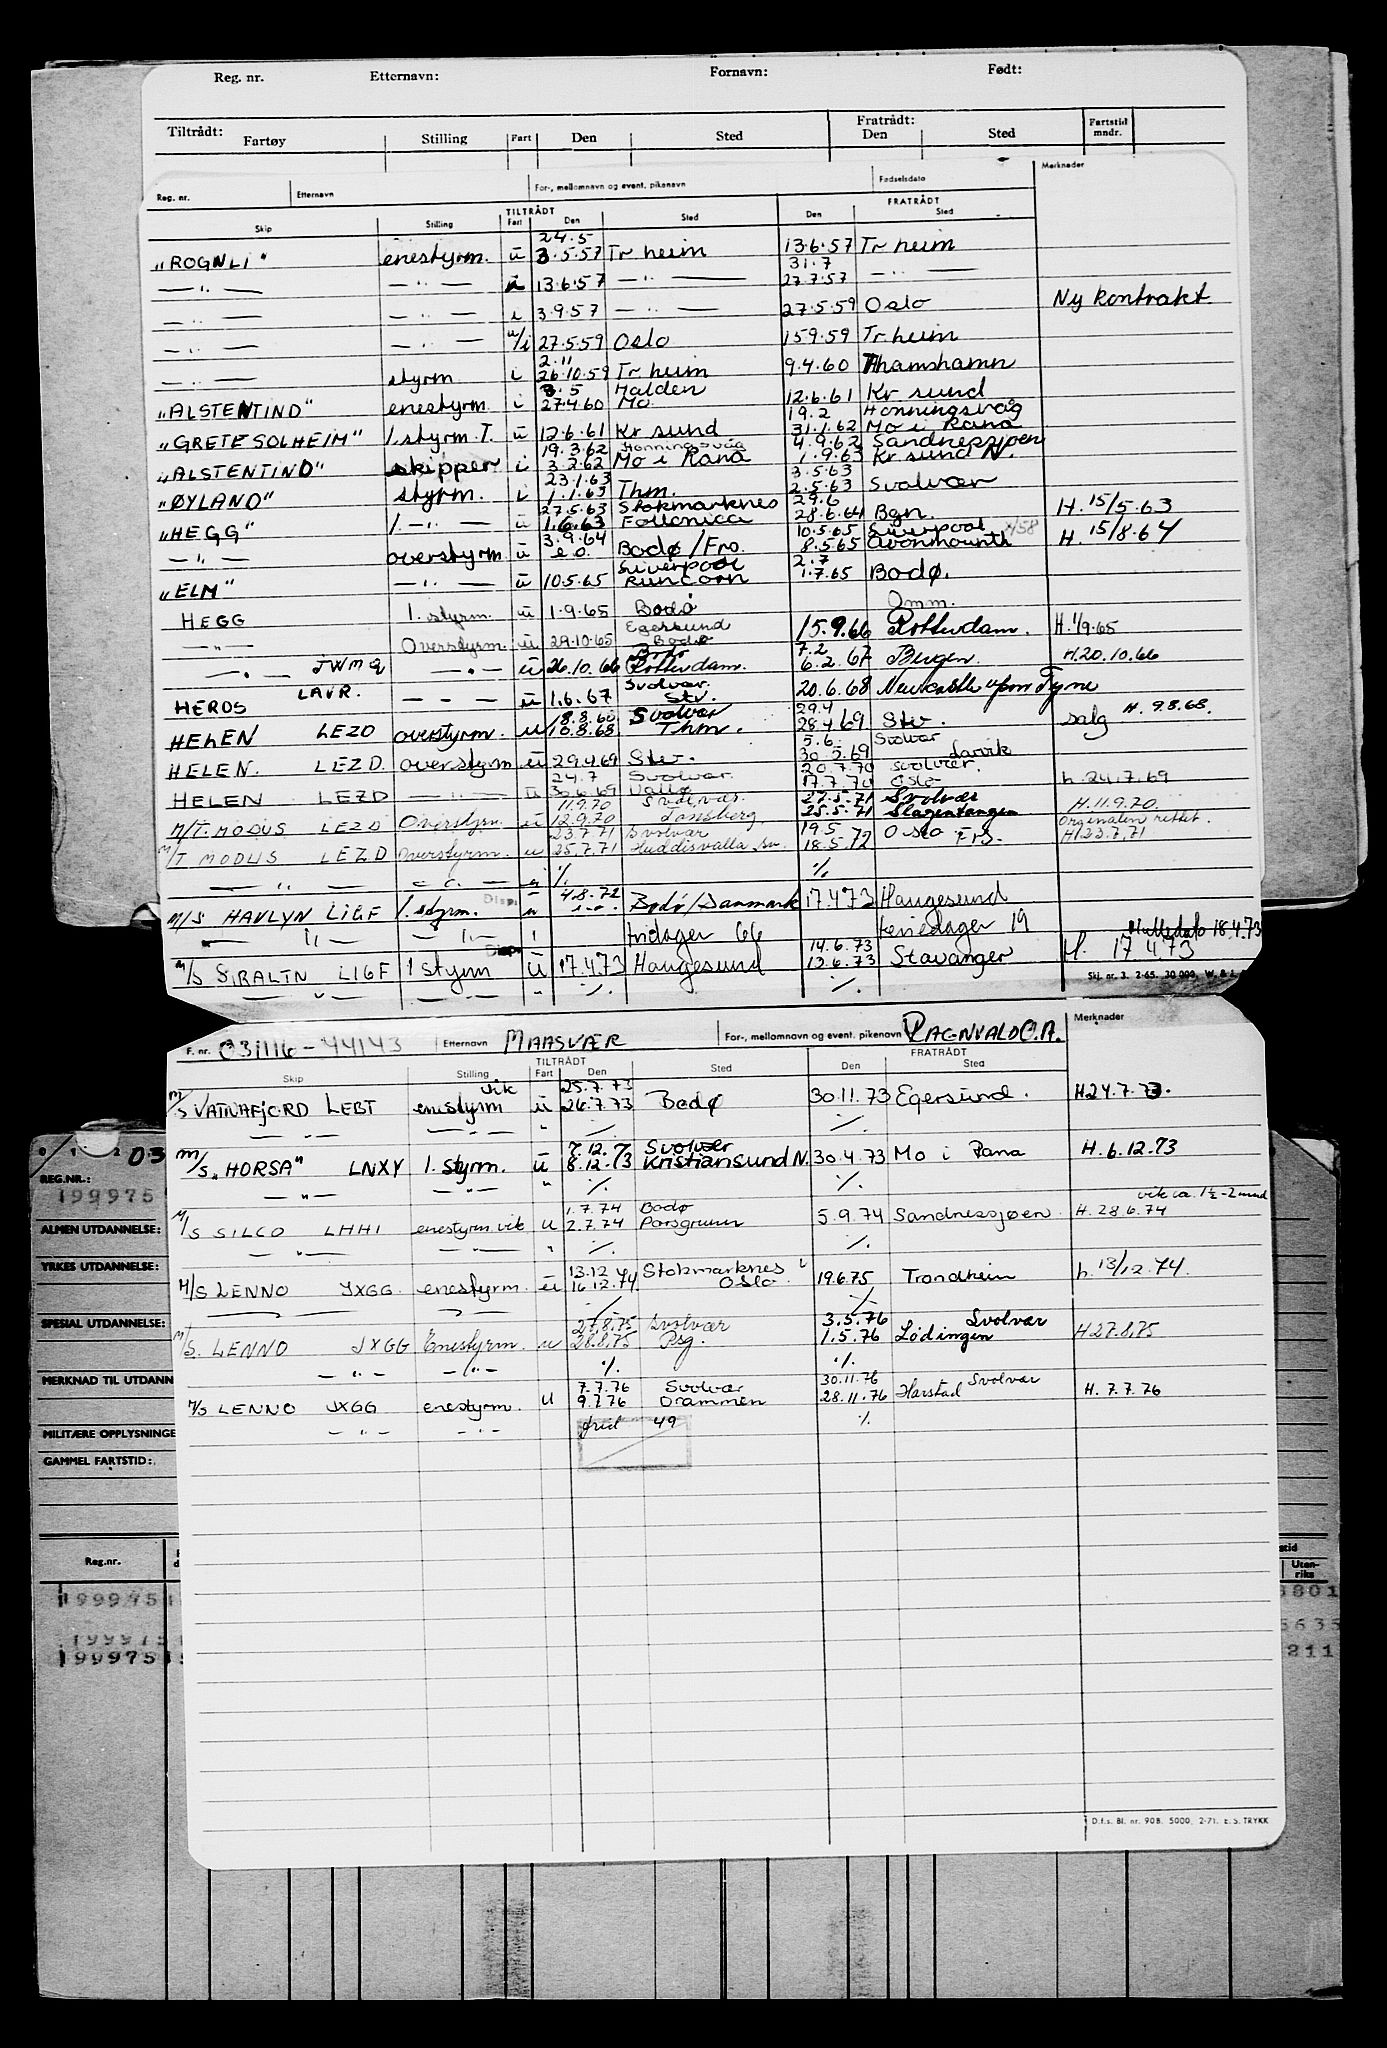 Reg. nr. Etternavn: Fornavn: Født:
Tiltrådt: Fratrådt: Fartstid mndr.
Fartøy Stilling Fart Den Sted Den Sted
Reg. nr. Etternavn For-, mellomnavn og event. pikenavn Fødselsdato Merknader
TILTRÅDT FRATRÅDT
Skip Stilling Fart Den Sted Den Sted
24.5
"ROGNLI" enestyrm. u 3.5.57 Tr heim 13.6.57 Tr heim
31.7
— " — — " — 13.6.57 — " — 27.7.57 — " —
— " — — " — i 3.9.57 — " — 27.5.59 Oslo Ny kontrakt
— " — — " — u/i 27.5.59 Oslo 15.9.59 Tr heim
2.11
— " — styrm i 26.10.59 Tr heim 9.4.60 Thamshamn
3.5 Halden
"ALSTENTIND" enestyrm. i 27.4.60 Mo 12.6.61 Kr sund
19.2 Honningsvåg
"GRETE SOLHEIM" 1. styrm. T. u 12.6.61 Kr sund 31.1.62 Mo i Rana
19.3.62 Honningsvåg 4.9.62 Sandnessjøen
"ALSTENTIND" skipper i 3.2.62 Mo i Rana 1.9.63 Kr sund N.
23.1.63 3.5.63
"ØYLAND" styrm. i 1.1.63 Thm. 2.5.63 Svolvær
27.5.63 Stokmarknes 29.6
"HEGG" 1. — " — u 1.6.63 Follonica 28.6.64 Bgn. H. 15/5.63
3.9.64 10.5.65 Liverpool
— " — overstyrm. u Bodø/Fro. 8.5.65 Avonmounth H. 15/8.64
Liverpool 2.7
"ELM" — " — u 10.5.65 Runcorn 1.7.65 Bodø.
HEGG 1. styrm. u 1.9.65 Bodø Omm.
Egersund
— " — Overstyrm. u 29.10.65 Bodø 15.9.66 Rotterdam. H. 1/9.65
Bodø 7.2
— " — JWMQ — " — u 26.10.66 Rotterdam. 6.2.67 Bergen. H.20.10.66
Svolvær.
HEROS LAVR. — - — u 1.6.67 Stv. 20.6.68 Newcastle upon Tyne
8.8.68 Svolvær 29.4
HELEN LEZD overstyrm. u 10.8.68 Thm. 28.4.69 Stv. salg H. 9.8.68.
5.6. Svolvær
HELEN. LEZD. overstyrm u 29.4.69 Stv. 30.5.69 Larvik
24.7 Svolvær. 20.7.70 Svolvær.
HELEN LEZD — " — u 30.6.69 Vallø 17.7.70 Oslo h. 24.7.69
11.9.70 Svolvær. 27.5.71 Svolvær
M/T. MODUS LEZD Overstyrm. u 12.9.70 Tønsberg 25.5.71 Slagentangen H.11.9.70.
23.7.71 Svolvær 19.5 Orginalen rettet.
M/T MODUS LEZD Overstyrm. u 25.7.71 18.5.72 Oslo H.23.7.71
— " — — " — ./. ./.
4.8.72
M/S HAVLYN LIGF 1. styrm. Disp. u Bodø/Danmark 17.4.73 Haugesund
— " — — " — fridager 66 feriedager 19
14.6.73 18.4.73
M/S LIGF 1 styrm Disp u 17.4.73 Haugesund 13.6.73 Stavanger H. 17.4.73
— " — — " — " ./. ./. Skj. nr. 3. 2-65. 30 000.
F. nr. 031116-44143 Etternavn MAASVÆR For-, mellomnavn og event. pikenavn RAGNVALD O.A. Merknader
TILTRÅDT FRATRÅDT
Skip Stilling Fart Den Sted Den Sted
vik 25.7.73
M/S VATNAFJORD LEBT enestyrm u 26.7.73 Bodø 30.11.73 Egersund. H.24.7.73.
— " — — " — " ./. ./.
7.12.73 Svolvær
M/S "HORSA" LNXY 1. styrm. u 8.12.73 Kristiansund N. 30.4.73 Mo i Rana H. 6.12.73
— " — — " — " ./. ./.
1.7.74 Bodø vik ca. 1½-2 mnd
M/S SILCO LHHI enestyrm vik u 2.7.74 Porsgrunn 5.9.74 Sandnessjøen H.28.6.74
— " — — " — " ./. ./.
13.12 Stokmarknes
M/S LENNO JXGG. enestyrm. u 16.12.74 Oslo 19.6.75 Trondheim h. 13/12.74.
./. ./.
27.8.75 Svolvær 3.5.76 Svolvær
M/S. LENNO JXGG Enestyrm. u 28.8.75 Psg. 1.5.76 Lødingen H.27.8.75
— " — — " — ./. ./.
7.7.76 Svolvær 30.11.76 Svolvær
M/S LENNO JXGG enestyrm. u 9.7.76 Drammen 28.11.76 Harstad H. 7.7.76
— " — — " — frid 49 ./.
D.f.s. Bl. nr. 90B. 5000. 2-71. E.S. TRYKK
0 1 2 03
REG.NR.:
199975
ALMEN UTDANNELSE:
YRKES UTDANNELSE:
SPESIAL UTDANNELSE:
MERKNAD TIL UTDANN
MILITÆRE OPPLYSNINGE
GAMMEL FARTSTID:
Reg.nr. Uten-riks
199975 801
199975 5635
199975 211